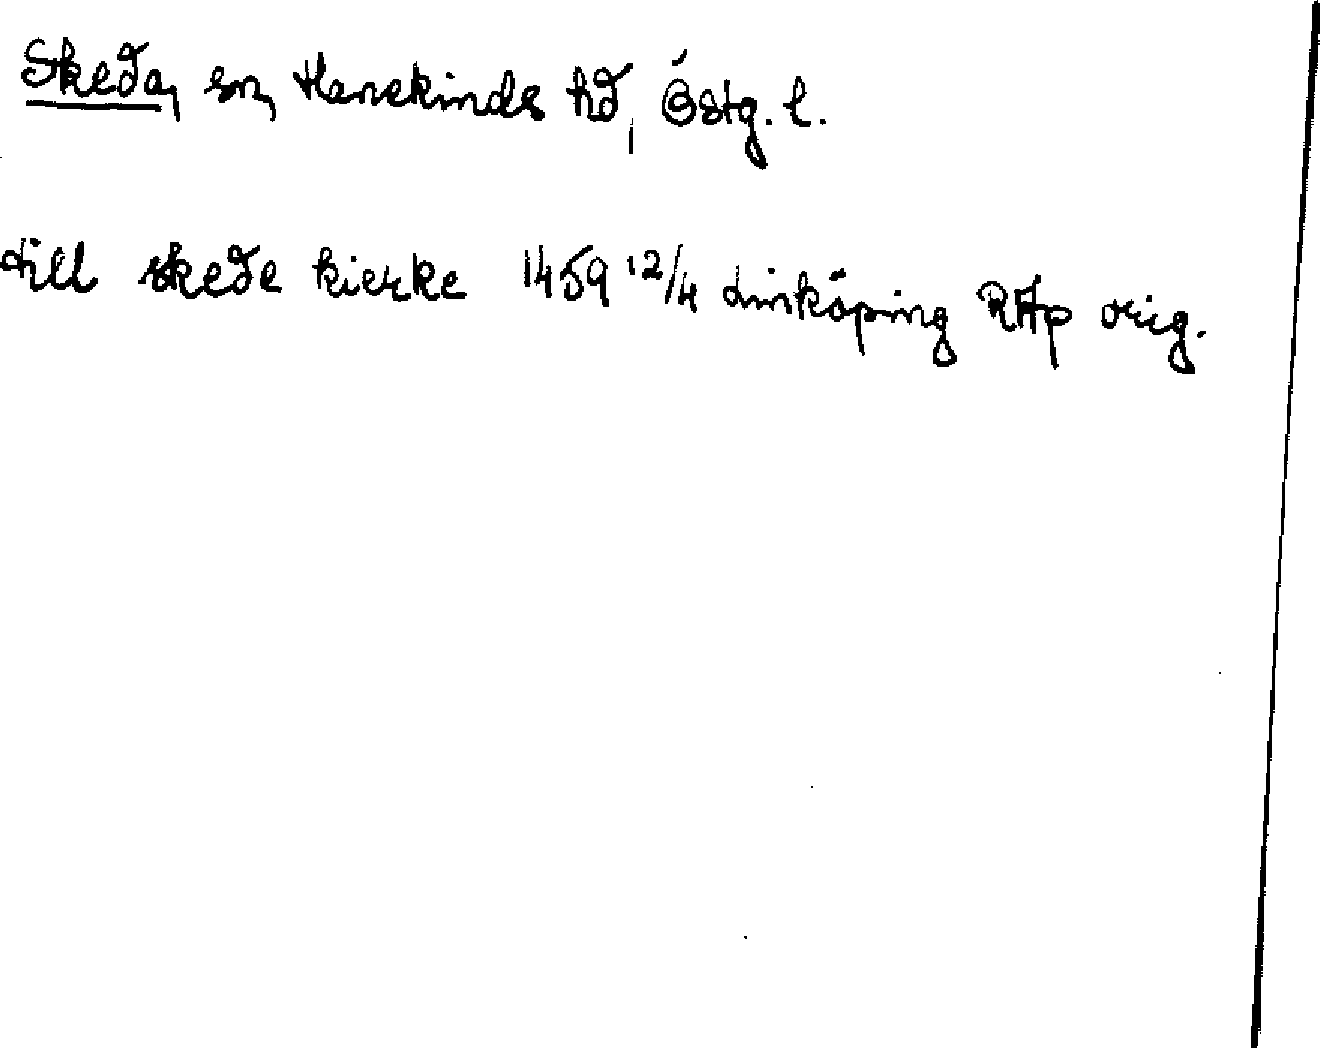 Skeda, sn, Hanekinds hd, Östg. l.
till skede kierke 1459 12/4 Linköping RAp orig.